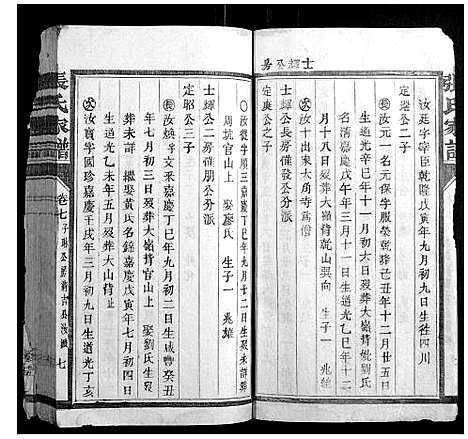 張氏家譜
士輝公房
汝廷字宰臣乾隆戊寅年九月初九日生往四川
定瑤公之子
汝元一名元保字服榮乾隆己丑年二月廿五日
生道光辛巳年十一月初六日歿葬大嶺背妣劉氏
名清嘉慶戊午年三月十一日生道光乙巳年十二
月十八日歿葬大嶺背乾山巽向 生子一 兆能
汝十出家大角寺為僧
士輝公長房儀發公分派
定奐公之子
周坑官山上 娶廖氏 生子一 兆雄
士輝公二房儀朋公分派
定昭公三子
長 汝煥字文采嘉慶丁巳年九月初二日生咸豐癸丑
年七月初三日歿葬大嶺背官山上 娶劉氏生歿
葬未詳 繼娶黃氏名錦嘉慶戊寅年七月初四日
生道光乙未年五月歿葬大山背
次 汝寶字國珍嘉慶壬戌年三月初九日生道光丁亥
張氏家譜
卷七
七